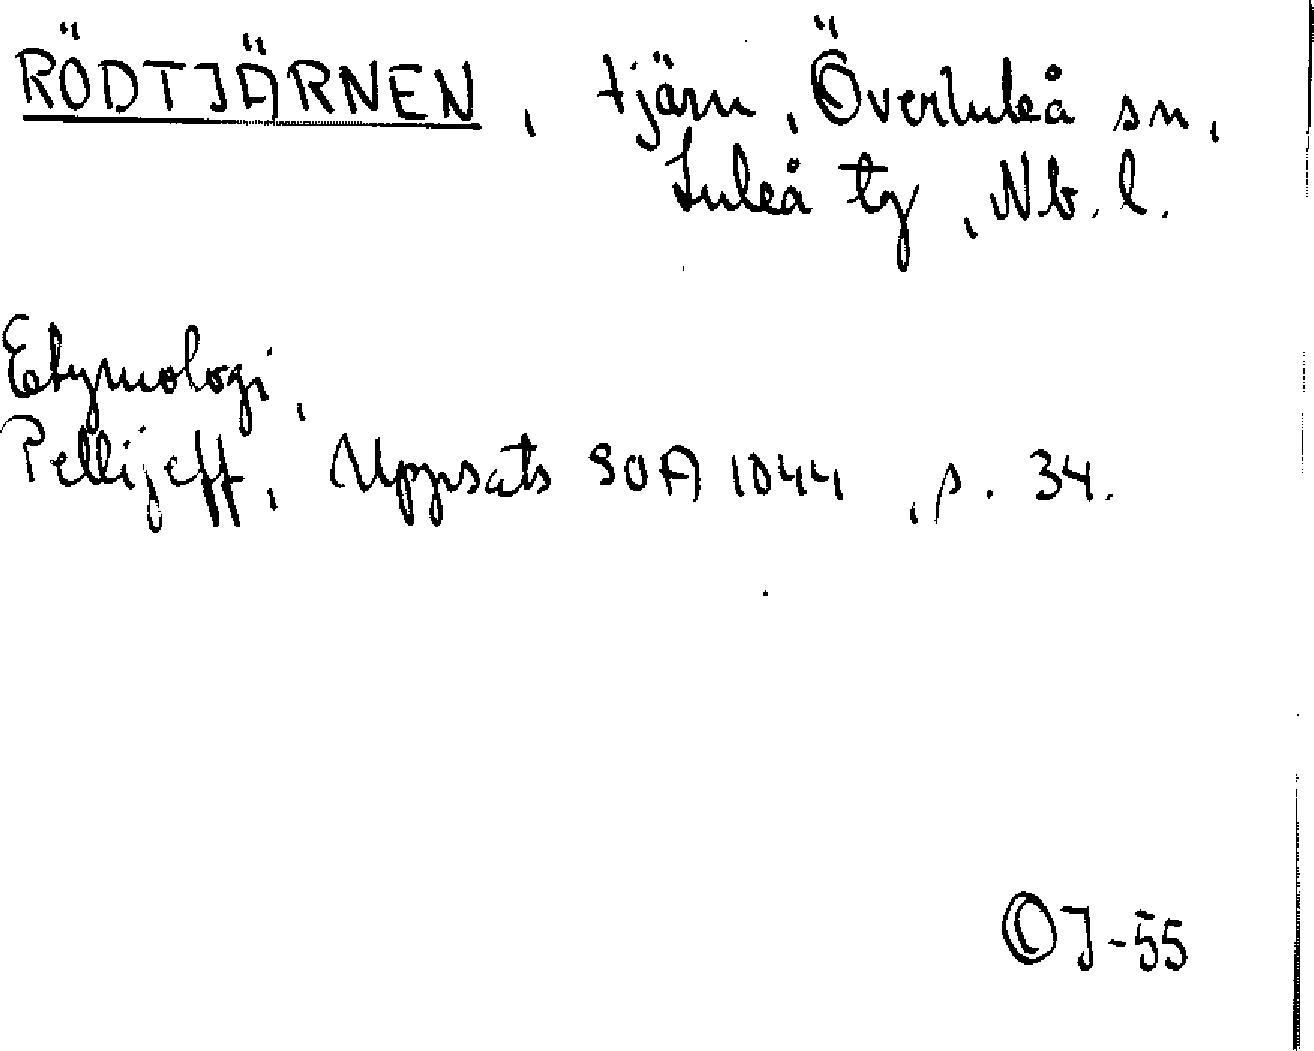 RÖDTJÄRNEN, tjärn, Överluleå sn,
Luleå tg, Nb. l.
Etymologi,
Pellijeff, Uppsats SOA 1044, s. 34.
OJ-55